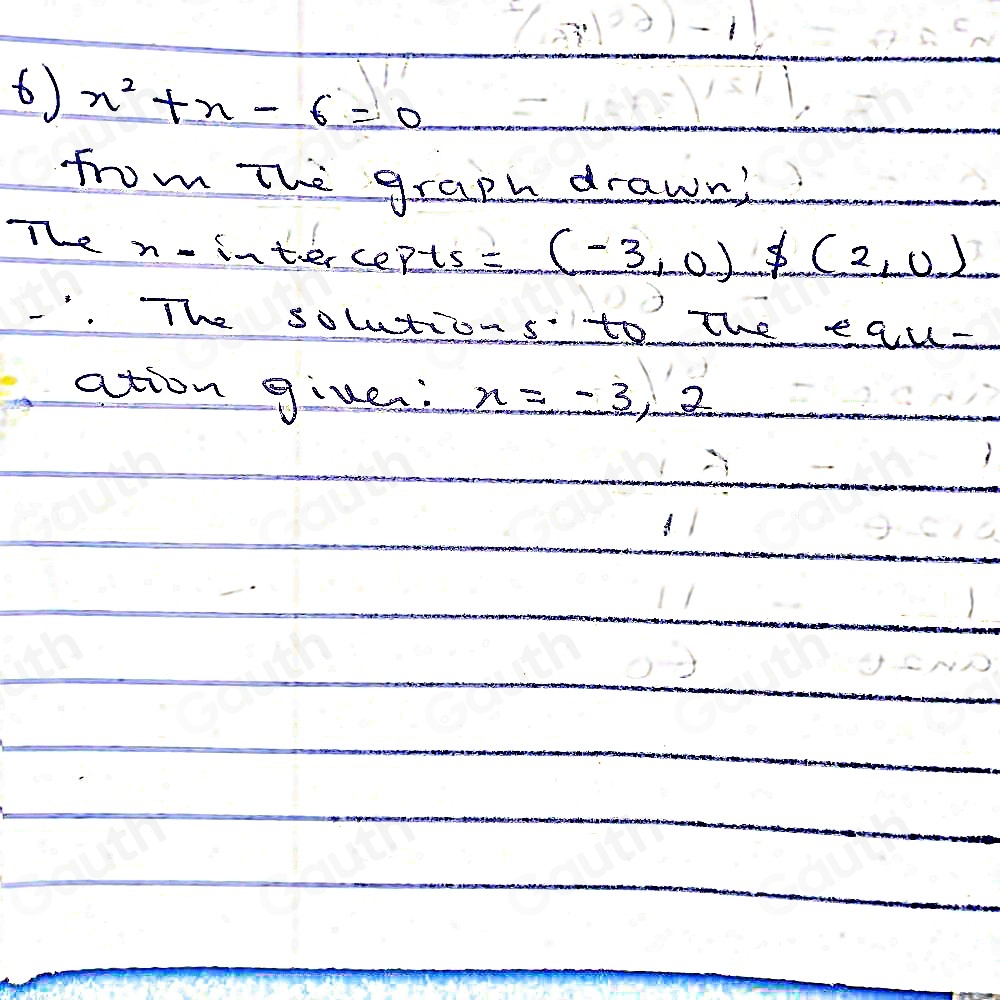 6) x² + x - 6 = 0
from The graph drawn;
The x-intercepts = (-3, 0) & (2, 0)
∴ The solutions to The equ-
ation given: x = -3, 2